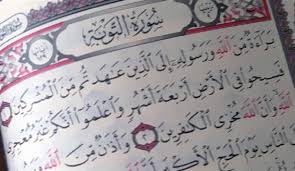 سُورَةُ التَّوْبَةِ
بَرَآءَةٌ مِّنَ ٱللَّهِ وَرَسُولِهِۦٓ إِلَى ٱلَّذِينَ عَٰهَدتُّم مِّنَ ٱلْمُشْرِكِينَ ١
فَسِيحُوا۟ فِى ٱلْأَرْضِ أَرْبَعَةَ أَشْهُرٍ وَٱعْلَمُوٓا۟ أَنَّكُمْ غَيْرُ مُعْجِزِى
ٱللَّهِ وَأَنَّ ٱللَّهَ مُخْزِى ٱلْكَٰفِرِينَ ٢ وَأَذَٰنٌ مِّنَ ٱللَّهِ
ٱلنَّاسِ يَوْمَ ٱلْحَجِّ ٱلْأَكْبَرِ أَنَّ ٱللَّهَ